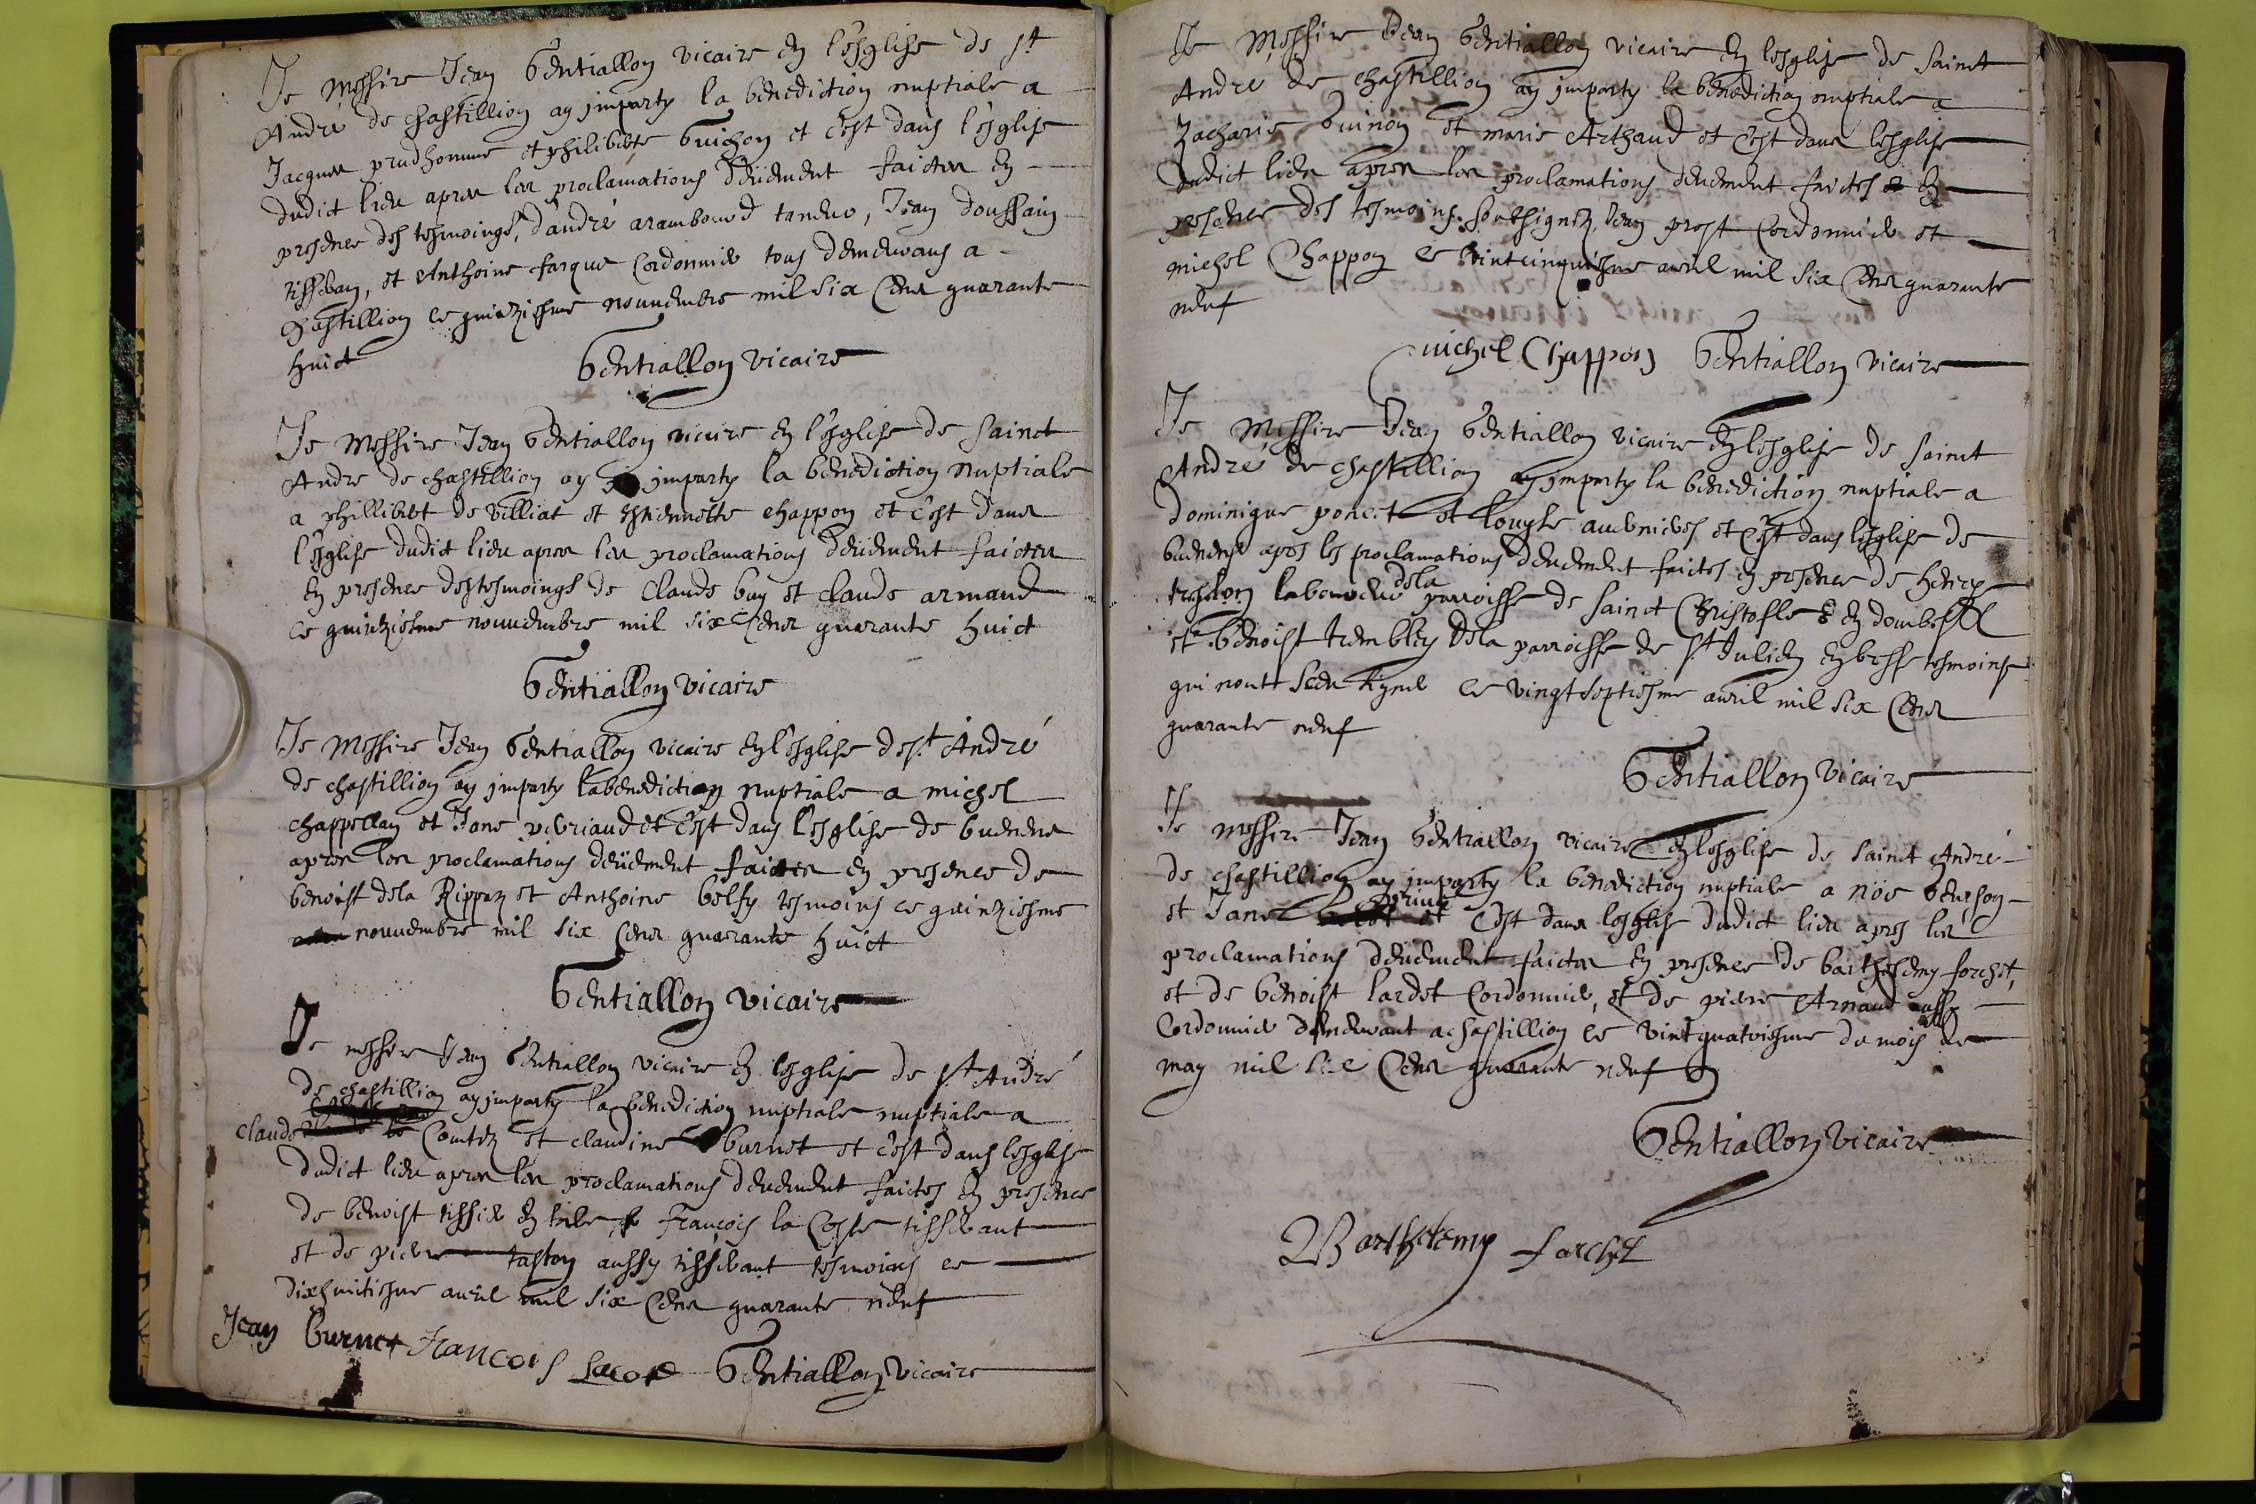 Je Messire Jean Gentiallon vicaire en l'esglise de st
André de chastillion ay jmparty la benediction nuptiale a
Jacques prudhomme et philiberte Guichon et c'est dans l'esglise
dudict lieu apres les proclamations deüement faictes en
presence des tesmoings, d'andré arambourd taneur, Jean doussain
tisseran, et Anthoine farque Cordonnier tous demeurans a
Chastillion ce quinziesme nouuembre mil six Cens quarante
huict
Gentiallon vicaire
Je Messire Jean Gentiallon vicaire en l'esglise de sainct
Andre de chastillion ay jmparty la benediction nuptiale
a phillibert de villiat et estiennette chappon et c'est dans
l'esglise dudict lieu apres les proclamations deüement faictes
en presence des tesmoings de Claude buy et claude armand
ce quinziesme nouuembre mil six Cens quarante huict
Gentiallon vicaire
Je Messire Jean Gentiallon vicaire en l'esglise de s.t André
de chastillion ay jmparty la benediction nuptiale a michel
chappellan et Jane periaud et c'est dans l'esglise de buenens
apres les proclamations deüement faictes en presence de
benoist dela Rippaz et Anthoine belfy tesmoins ce quinziesme
nouuembre mil six Cens quarante huict
Gentiallon vicaire
Je messire Jean Gentiallon vicaire en l'esglise de s.t André
de chastillion ay jmparty la benediction nuptiale nuptiale a
claude Comtez et claudine burnet et c'est dans l'esglise
dudict lieu apres les proclamations deuement faictes en presence
de benoist tissier en toile françois la Coste tisserant
et de pierre taston aussy tisserant tesmoins ce
dixhuitiesme auril mil six Cens quarante neuf
Jean burnet francois lacote Gentiallon vicaire
Je Messire Jean Gentiallon vicaire en l'esglise de sainct
André de chastillion ay jmparty la benediction nuptiale a
Zacharie Guinon et marie Arthaud et c'est dans l'esglise
dudict lieu apres les proclamations deuement faictes en
presence des tesmoins soubsignez Jean prost Cordonnier et
michel Chappon ce vintcinquiesme auril mil six Cens quarante
neuf
michel Chappon Gentiallon vicaire
Je Messire Jean Gentiallon vicaire en l'esglise de sainct
André de chastillion ay jmparty la benediction nuptiale a
dominique poncet et et c'est dans l'esglise de
buenens apres les proclamations deuement faictes en presence de henry
treslon laboureur dela parroisse de sainct Christofle en dombes
et benoist trembley dela parroisse de s.t Julien en bresse tesmoins
qui nont sceu signer ce vingtseptiesme auril mil six Cens
quarante neuf
Gentiallon vicaire
Je messire Jean Gentiallon vicaire en l'esglise de sainct André
de chastillion ay jmparty la benediction nuptiale a noe
et Jane c'est dans l'esglise dudict lieu apres les
proclamations deüement faictes en presence de barthelemy forchet,
et de benoist lardet Cordonnier, et de pierre Arnaud aussy
Cordonnier demeurant a chastillion ce vintquatriesme du mois de
may mil six Cens quarante neuf
Gentiallon vicaire
Barthelemy forchet